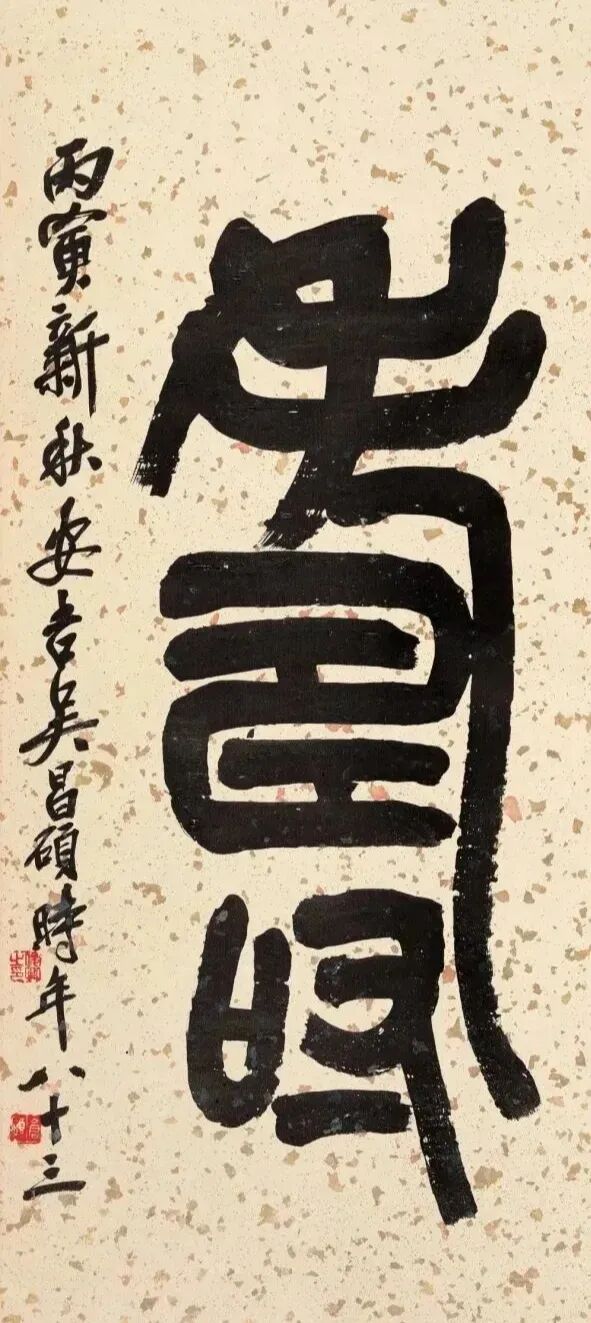 壽
丙寅新秋安吉吳昌碩時年八十三